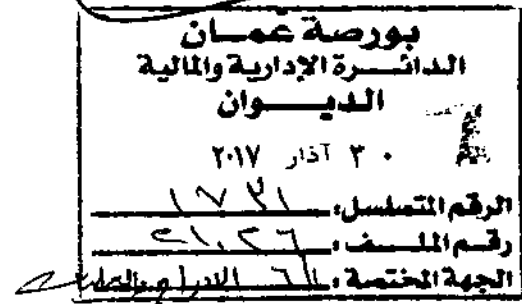 بورصة عمــان
الدائـــرة الإدارية والمالية
الديـــوان
٣٠ آذار ٢٠١٧
الرقم المتسلسل: ١٧٣١
رقم الملــف:
الجهة المختصة: